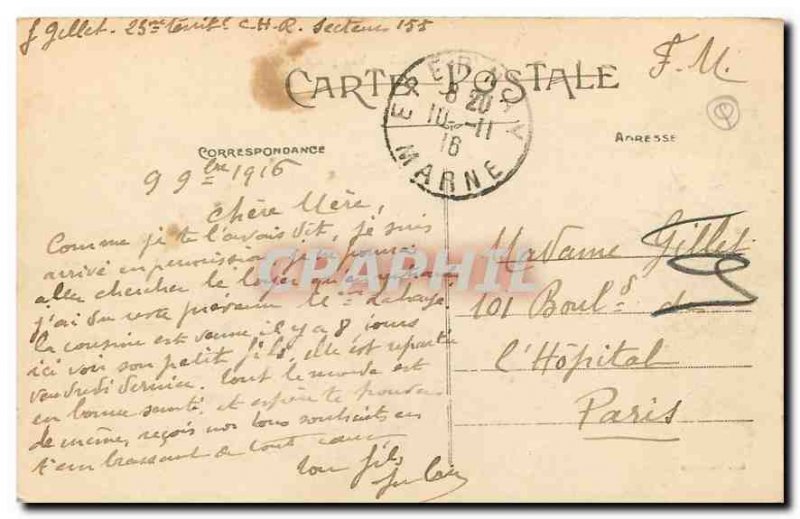 J Gillet. 25me Territ. C.H.R. Secteur 155
F. M.
CARTE POSTALE
EPERNAY
8 20
10-11
16
MARNE
CORRESPONDANCE
ADRESSE
9 9bre 1916
Chère Mère,
Comme je te l'avais dit, je suis
arrivé en permission
aller chercher le loyer
j'ai du reste prévenu
la cousine est venue il y a 8 jours
ici voir son petit fils, elle est repartie
vendredi dernier. Tout le monde est
en bonne santé, et espère te trouver
de même, reçois nos bons souhaits en
t'embrassant de tout coeur
ton fils
Madame Gillet
101 Boul.d de
l'Hôpital
Paris
CPAPHIL